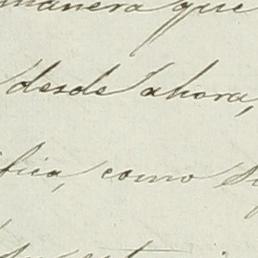 manera que
desde ahora,
fica, como